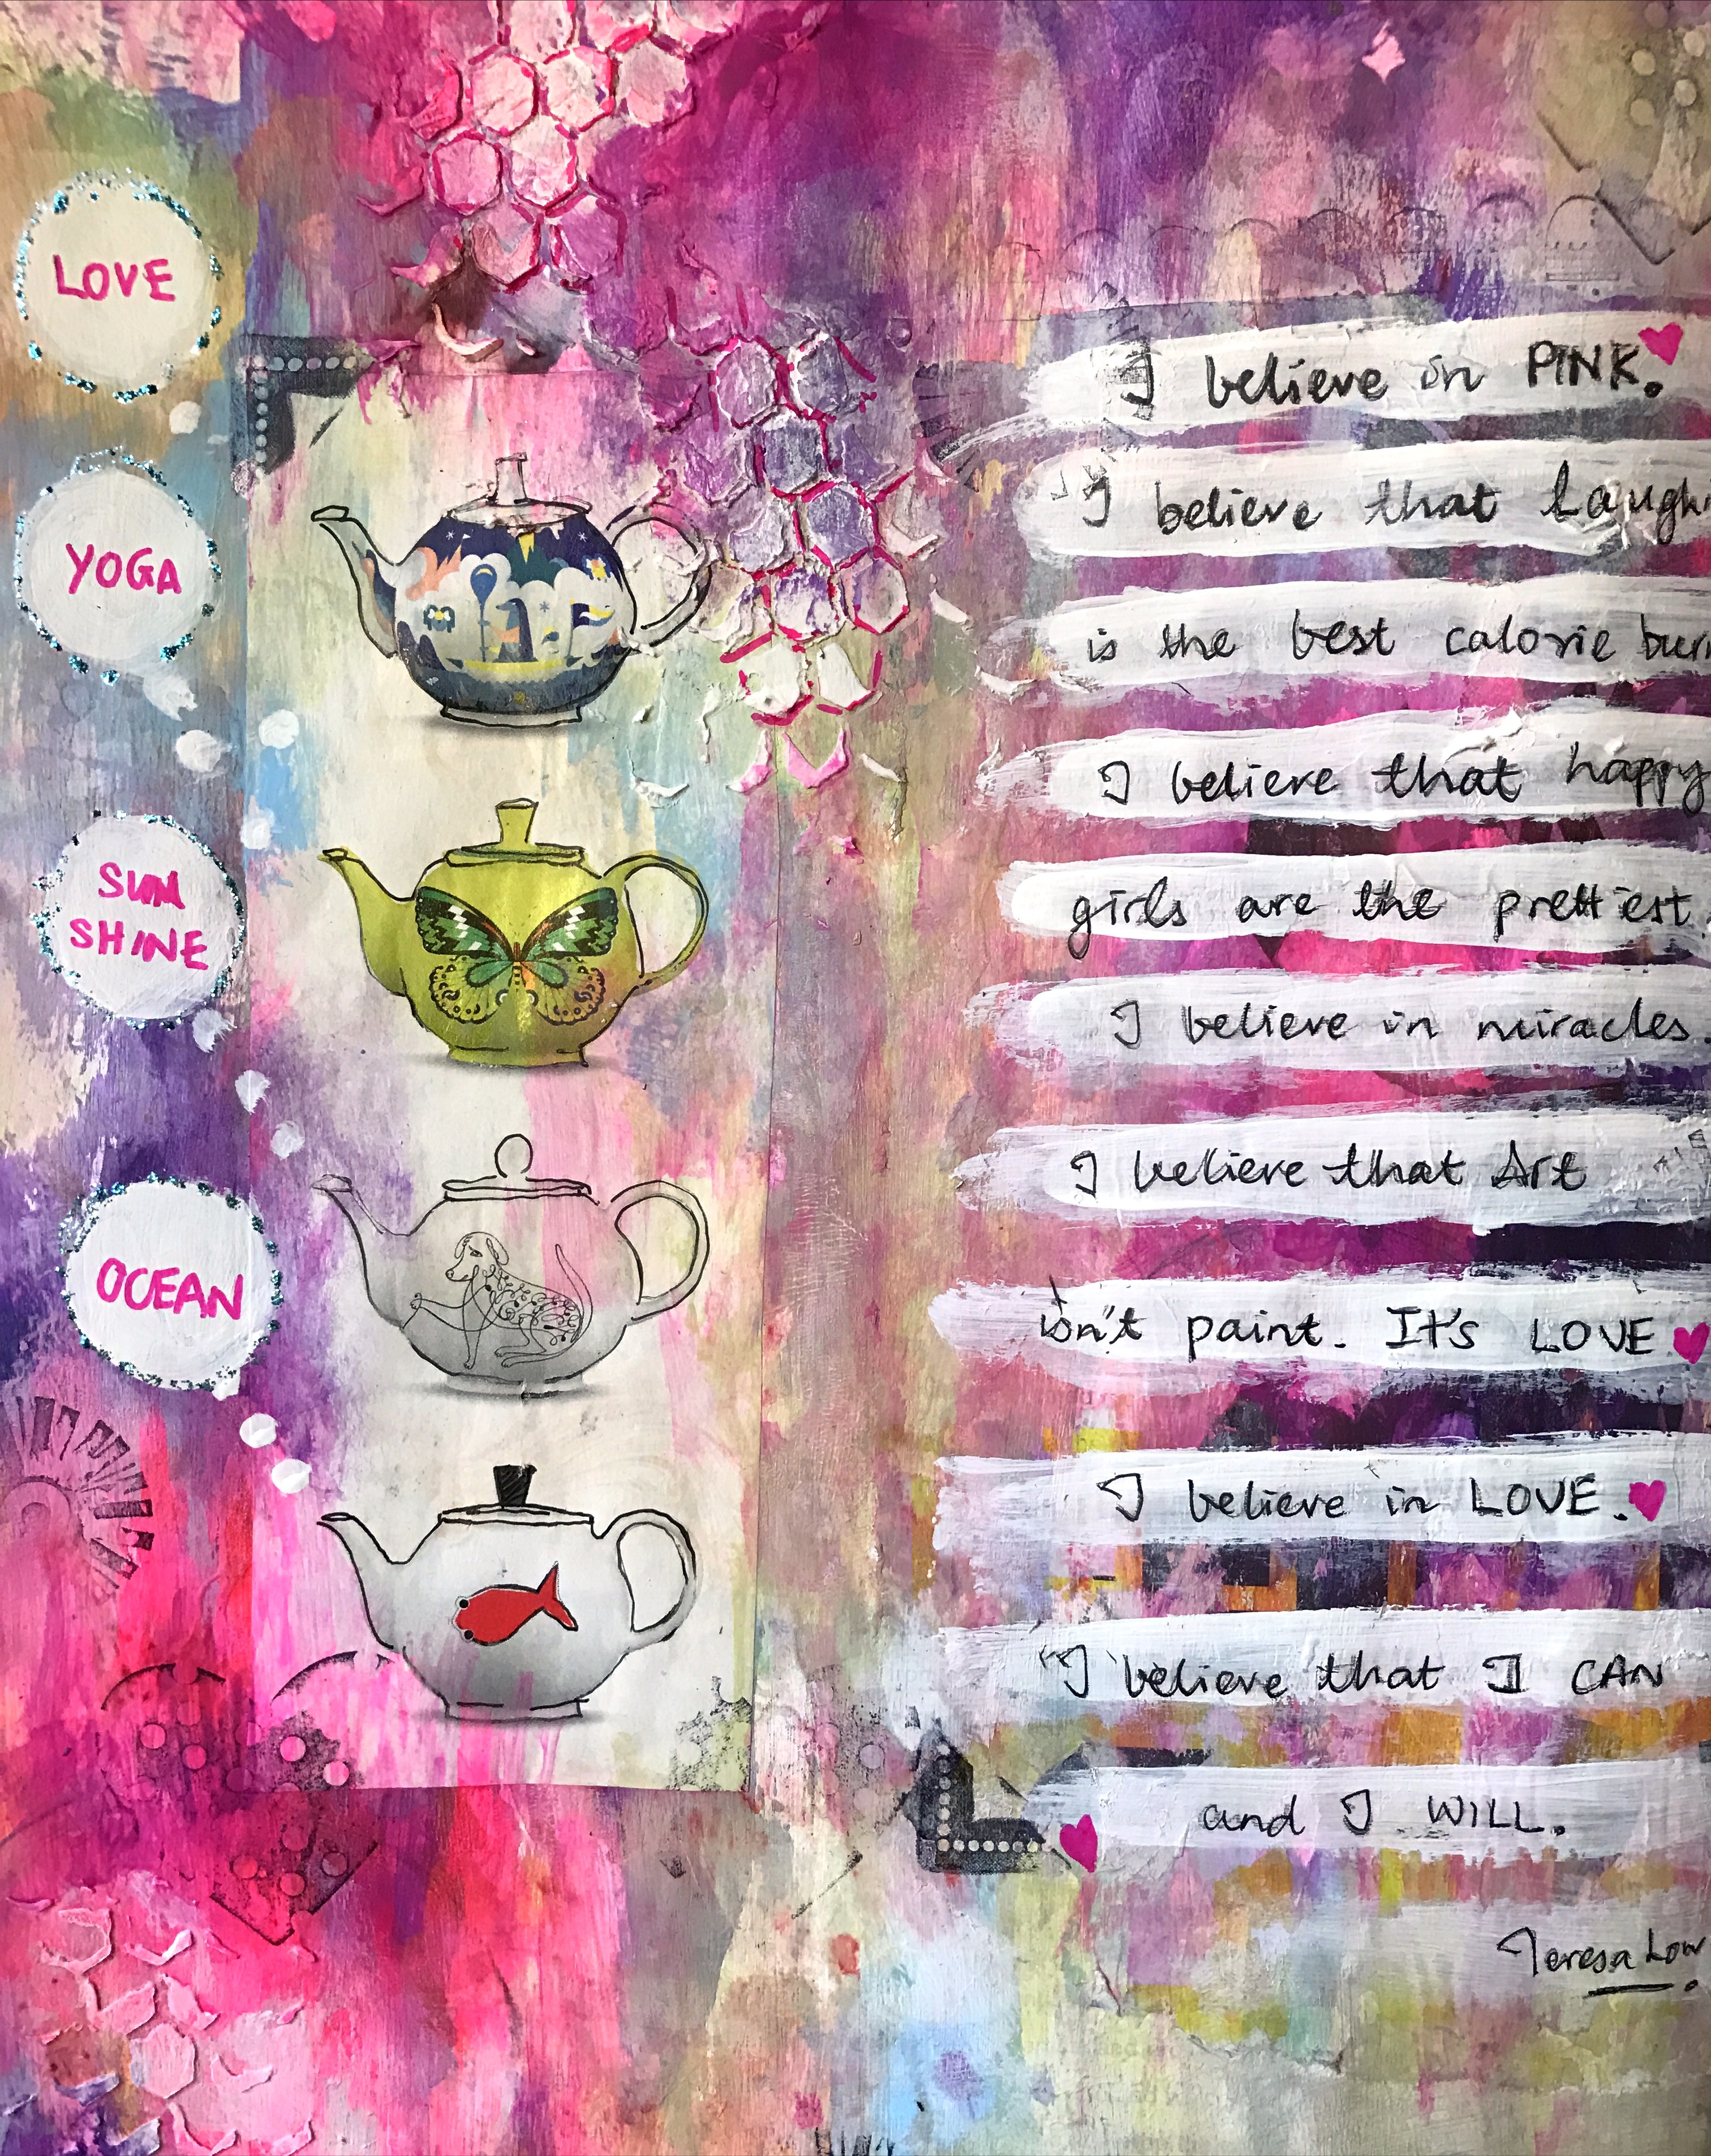 LOVE
YOGA
SUN
SHINE
OCEAN
I believe in PINK.
I believe that
is the best calorie
I believe that happy
girls are the prettiest.
I believe in miracles.
I believe that Art
isn't paint. It's LOVE.
I believe in LOVE.
I believe that I CAN
and I WILL.
Teresa Low